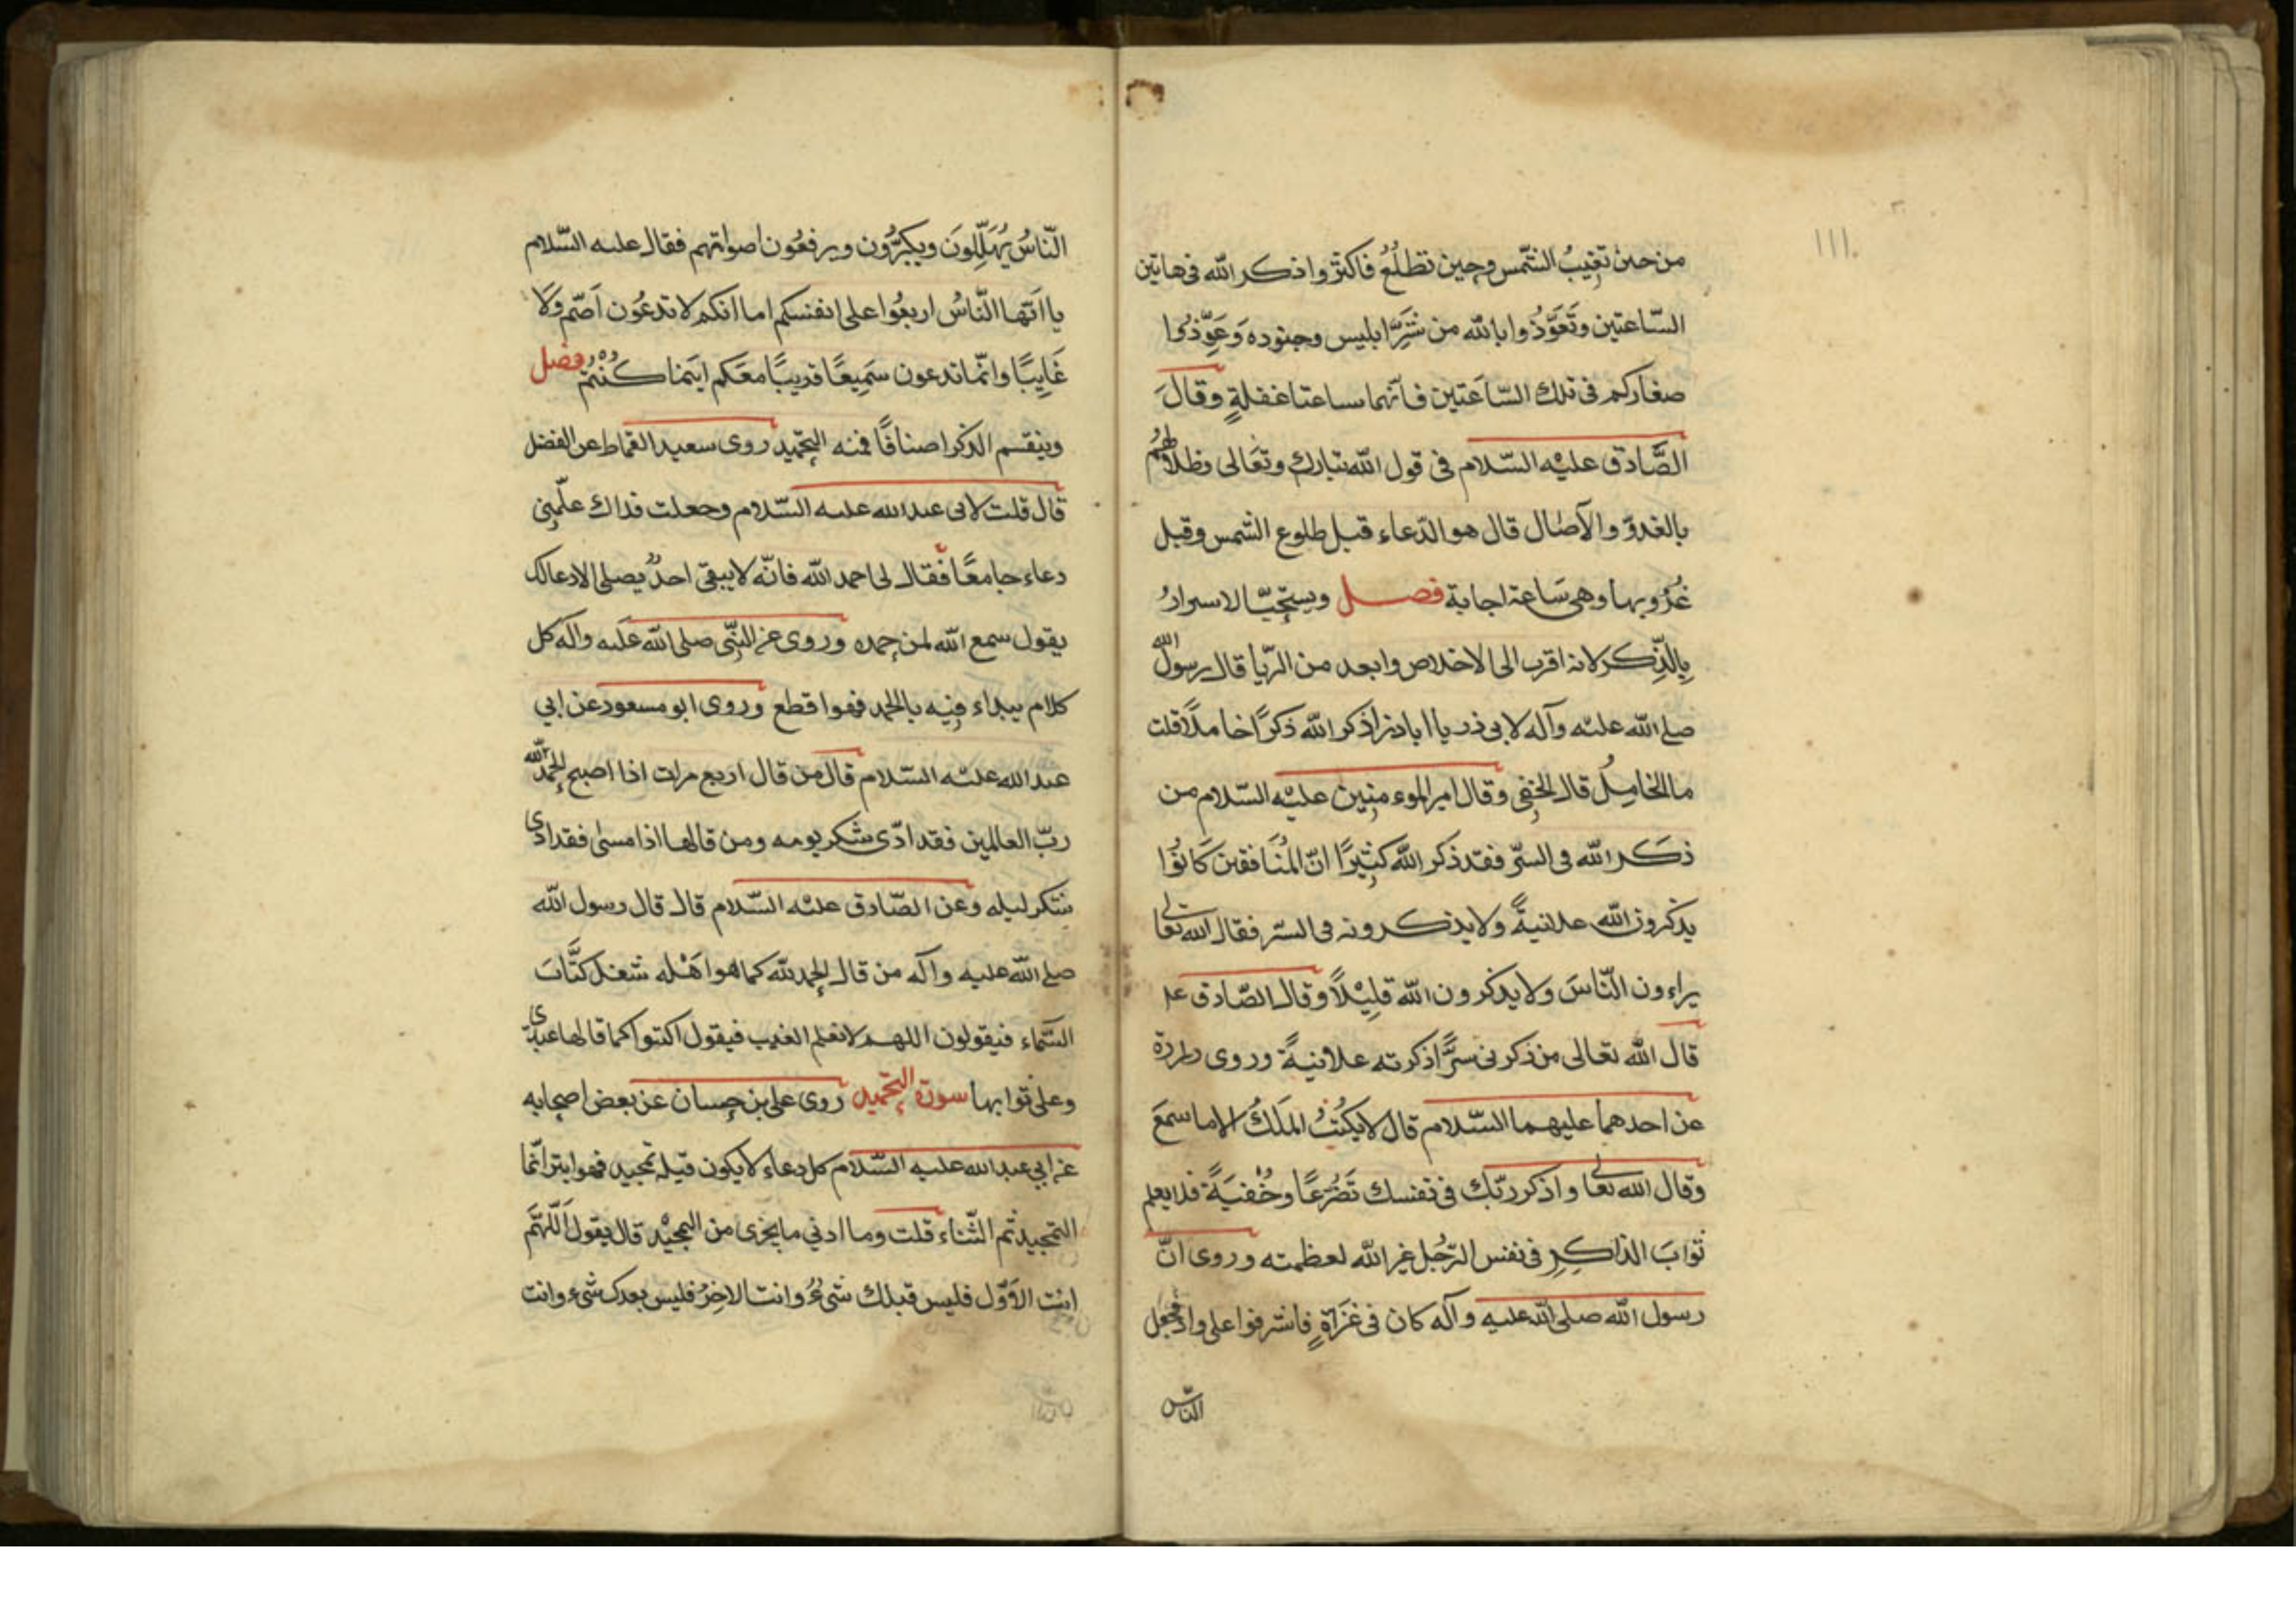 ١١١
من حين تغيبُ الشّمس وحين تطلُعُ فاكثروا ذكر الله فى هاتين
السّاعتين وتَعَوَّذُوا بالله من شَرِّ ابليس وجنوده وَعَوِّذُوا
صغاركم فى تلك السّاعَتين فانّهما ساعتا غفلةٍ وقالَ
الصَّادق عليْه السّلام فى قول الله تبارك وتعَالى وظلالهُمُ
بالغدوّ والآصال قال هو الدّعاء قبل طلوع الشّمس وقبل
غُرُوبها وهى سَاعة اجابة فصل ويستحبّ الاسرارُ
بِالذِّكر لانه اقرب الى الاخلاص وابعد من الرّيا قال رسول الله
صلے الله عليْه وآله لابى ذر يا اباذر اذكر الله ذكرًا خاملًا قلت
ما الخامِلُ قال الخفِى وقال امير الموءمنِين عليْه السّلام من
ذكَر الله فى السرّ فقد ذكر الله كثِيرًا انّ المُنَافقين كَانوُا
يذكرون الله علانيةً ولا يذكرونه فى السّر فقال الله تعالى
يراءون النّاسَ ولا يذكرون الله قلِيْلًا وقال الصّادق عل
قال الله تعالى من ذكرنى سرًّا ذكرته علانيةً وروى زرارة
عن احدهما عليهما السّلام قال لا يكتُبُ المَلَكُ الا ما سمَعَ
وقال الله تعالى واذكر ربّك فى نفسك تَضَرُّعًا وخُفْيَةً فلا يعلم
ثوابَ الذاكِرِ فى نفس الرّجُل غير الله لعظمته وروى انّ
رسول الله صلى الله عليه وآله كان فى غزَاةٍ فاشرفوا على واد فجعل
النّاس
النّاسُ يُهَلِّلِونَ ويكبّرُون ويرفعُون اصواتهم فقال عليه السّلام
يا ايّها النّاسُ اربعُوا على انفسكم اما انكم لا تدعُون اَصَمّ وَلَا
غَايِبًا وانّما تدعون سَمِيعًا قريبًا معَكم اينَما كُنْتُمْ فصل
وينقسم الذكر اصنافًا فمنه التحْمِيد روى سعيد القماط عن الفضل
قال قلت لابى عبد الله عليه السّلام وجعلت فداك علّمِنى
دعاء جامعًا فقال لى احمد الله فانّه لا يبقى احدٌ يصلى الا دعا لك
يقول سمع الله لمن حمده وروى عن النبّى صلى الله عَليه وآله كل
كلام يبداء فيْه بالحمد فهو اقطع وروى ابو مسعود عن ابي
عبد الله عليْه السّلام قال من قال اربع مرات اذا اصبح الحمد لله
ربّ العالمين فقد ادّى شكر يومه ومن قالها اذا مسىٰ فقد ادّى
شكر ليله وعن الصّادق عليْه السّلام قال قال رسول الله
صلے الله عليه وآله من قال الحمد لله كما هو اهْله شغل كتَّابَ
السّماء فيقولون اللهم لا نعلم الغيب فيقول اكتبوا كما قالها عبدى
وعلى ثوابها سورة التحميد روى على بن حسان عن بعض اصحابه
عن ابي عبد الله عليه السّلام كل دعاء لا يكون قبله تمجيد فهو ابتر انّما
التمجيد ثم الثّناء قلت وما ادني ما يجزى من التمجيْد قال يقول اللّهَمَّ
انت الاَوّل فليس قبلك شىءُ وانت الاخِرُ فليس بعدك شىء وانت